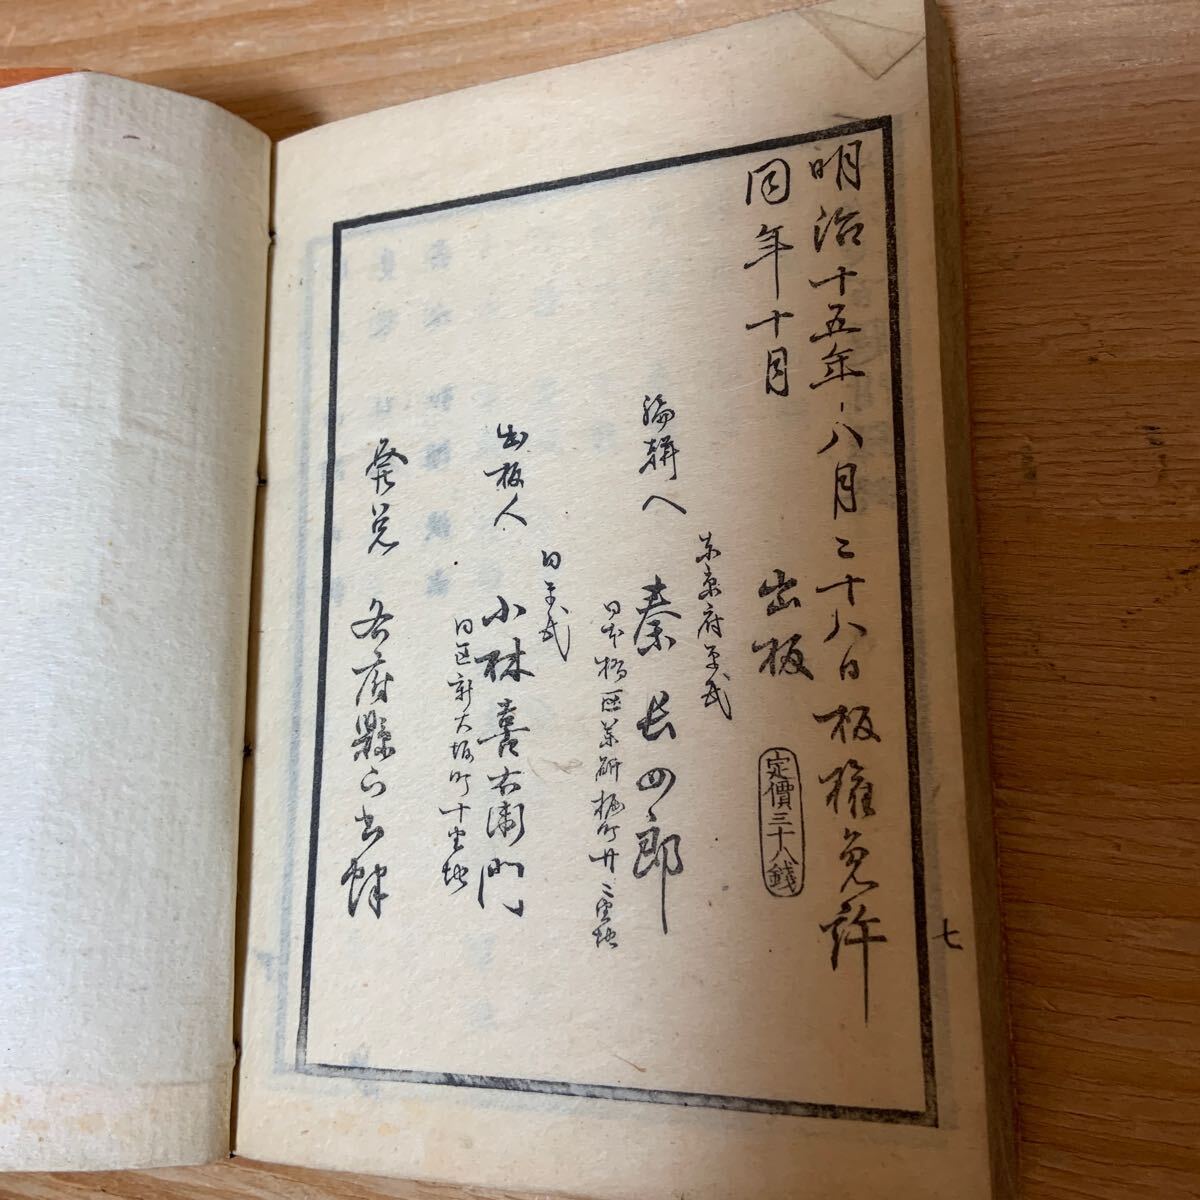 明治十五年八月二十八日板権免許
同年十月
出板
定價三十八錢
東京府平民
編輯人
秦長四郎
日本橋区薬研堀町廿二番地
同平民
出板人
小林喜右衛門
同区新大坂町十番地
発兌
各府縣下書肆
七